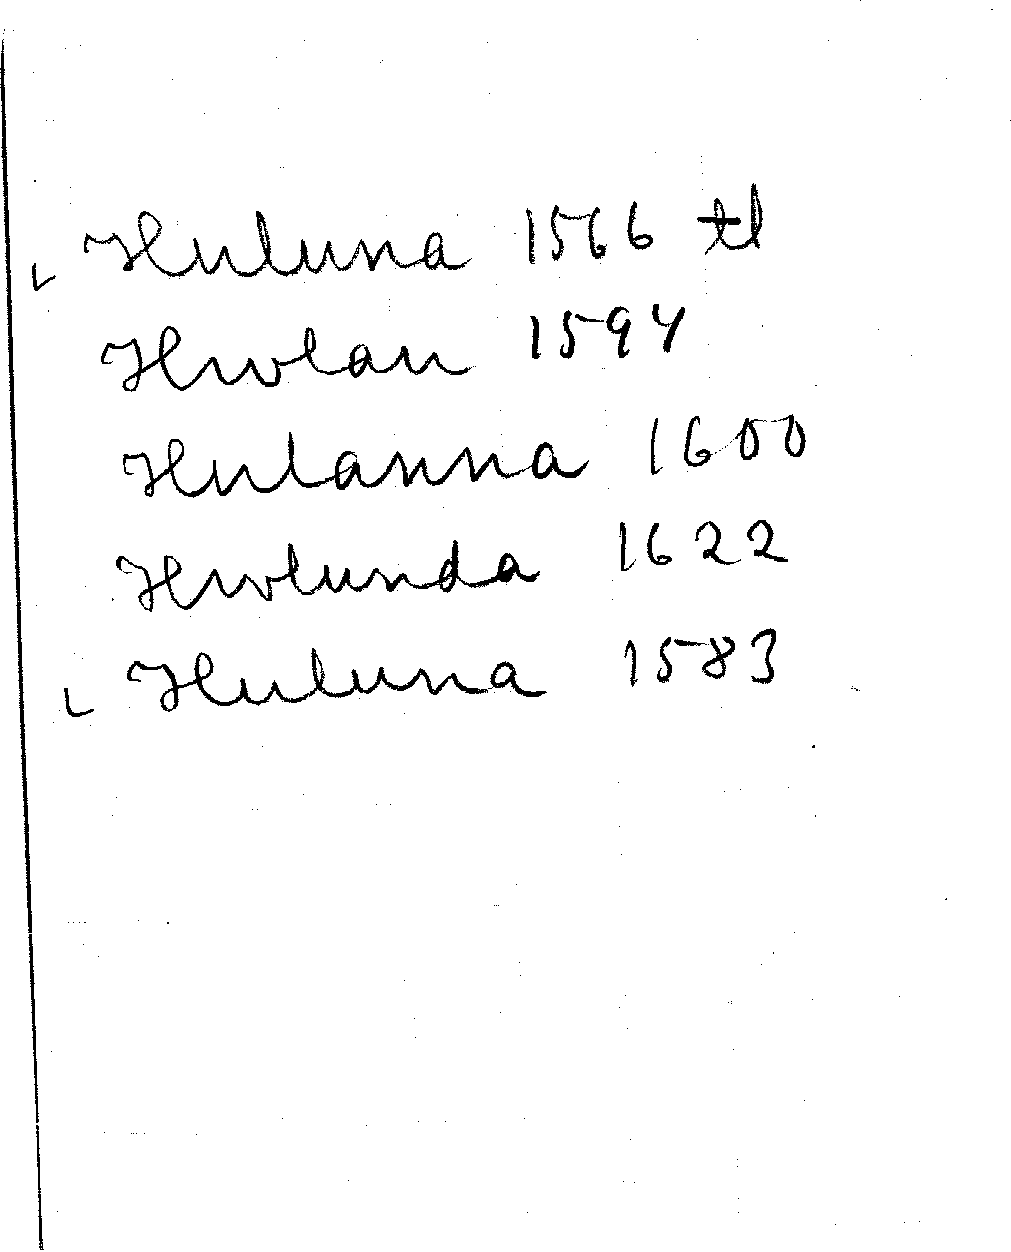 Huluna 1566 tl
Hvolan 1594
Hulanna 1600
Hvolunda 1622
Huluna 1583